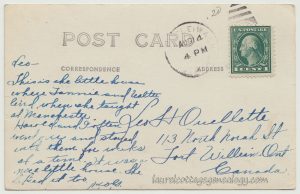 20
POST CARD
CORRESPONDENCE
ADDRESS
4 PM
1 CENT 1
Leo -
This is the little house
where Fannie and Walter
lived when she taught
at Manchester.
and often
went and stayed
with them for weeks
at a time. It was a
nice little house. She
liked it too
Leo H Ouellette
113 North Royal St
Fort William Ont
Canada
laurelcottagegenealogy.com